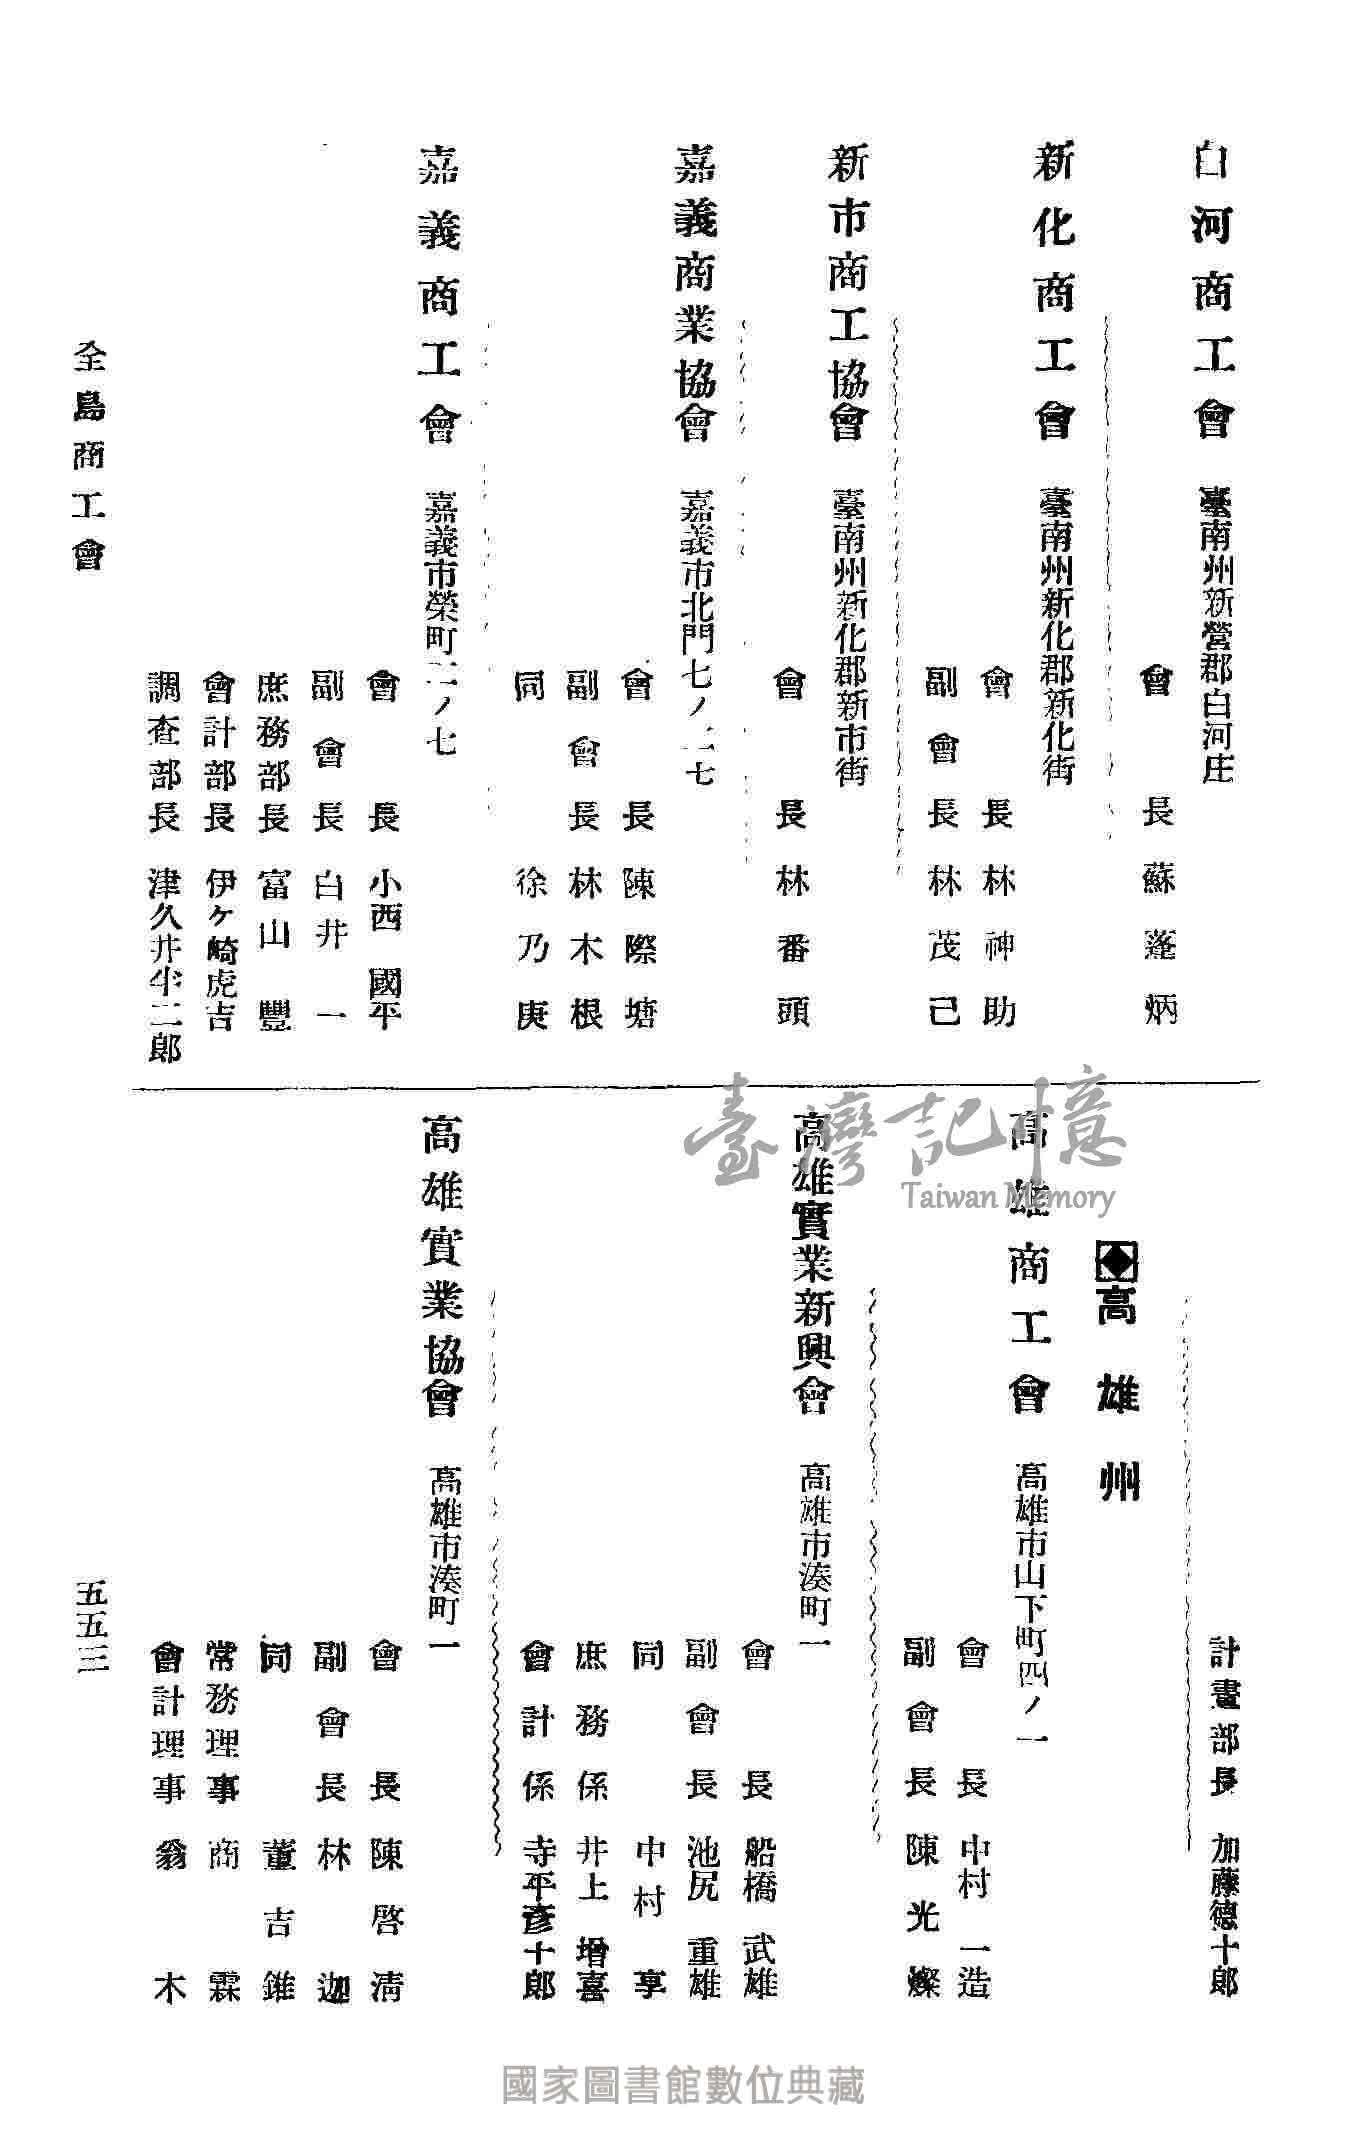 白河商工會　臺南州新營郡白河庄
會長　蘇蓬炳
新化商工會　臺南州新化郡新化街
會長　林神助
副會長　林茂己
新市商工協會　臺南州新化郡新市街
會長　林番頭
嘉義商業協會　嘉義市北門七ノ二七
會長　陳際塘
副會長　林木根
同　徐乃庚
嘉義商工會　嘉義市榮町二ノ七
會長　小西國平
副會長　白井一
庶務部長　富山豐
會計部長　伊ケ崎虎吉
調查部長　津久井半二郎
計畫部長　加藤德十郎
高雄州
高雄商工會　高雄市山下町四ノ一
會長　中村一造
副會長　陳光燦
高雄實業新興會　高雄市湊町一
會長　船橋武雄
副會長　池尻重雄
同　中村享
庶務係　井上增喜
會計係　寺平彥十郎
高雄實業協會　高雄市湊町一
會長　陳啓清
副會長　林迦
同　董吉錐
常務理事　商霖
會計理事　翁木
全島商工會
五五三
臺灣記憶
Taiwan Memory
國家圖書館數位典藏